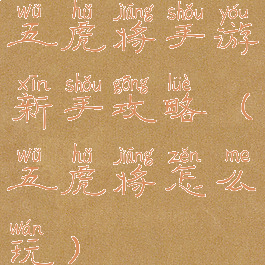 wǔ hǔ jiàng shǒu yóu
五虎将手游
xīn shǒu gōng lüè
新手攻略（
wǔ hǔ jiàng zěn me
五虎将怎么
wán
玩）